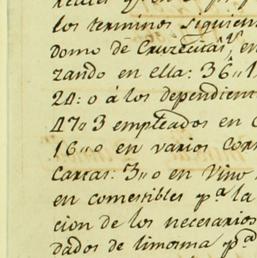 los terminos siguien
domo de Cruzecitas, y en
zando en ella: 36,,1
24: o á los dependient
47,,3 empleados en C
16,,0 en varios Corr
Cartas: 3,,0 en Vino
en comestibles pa. la
cion de los necesarios
dados de limosna pa.